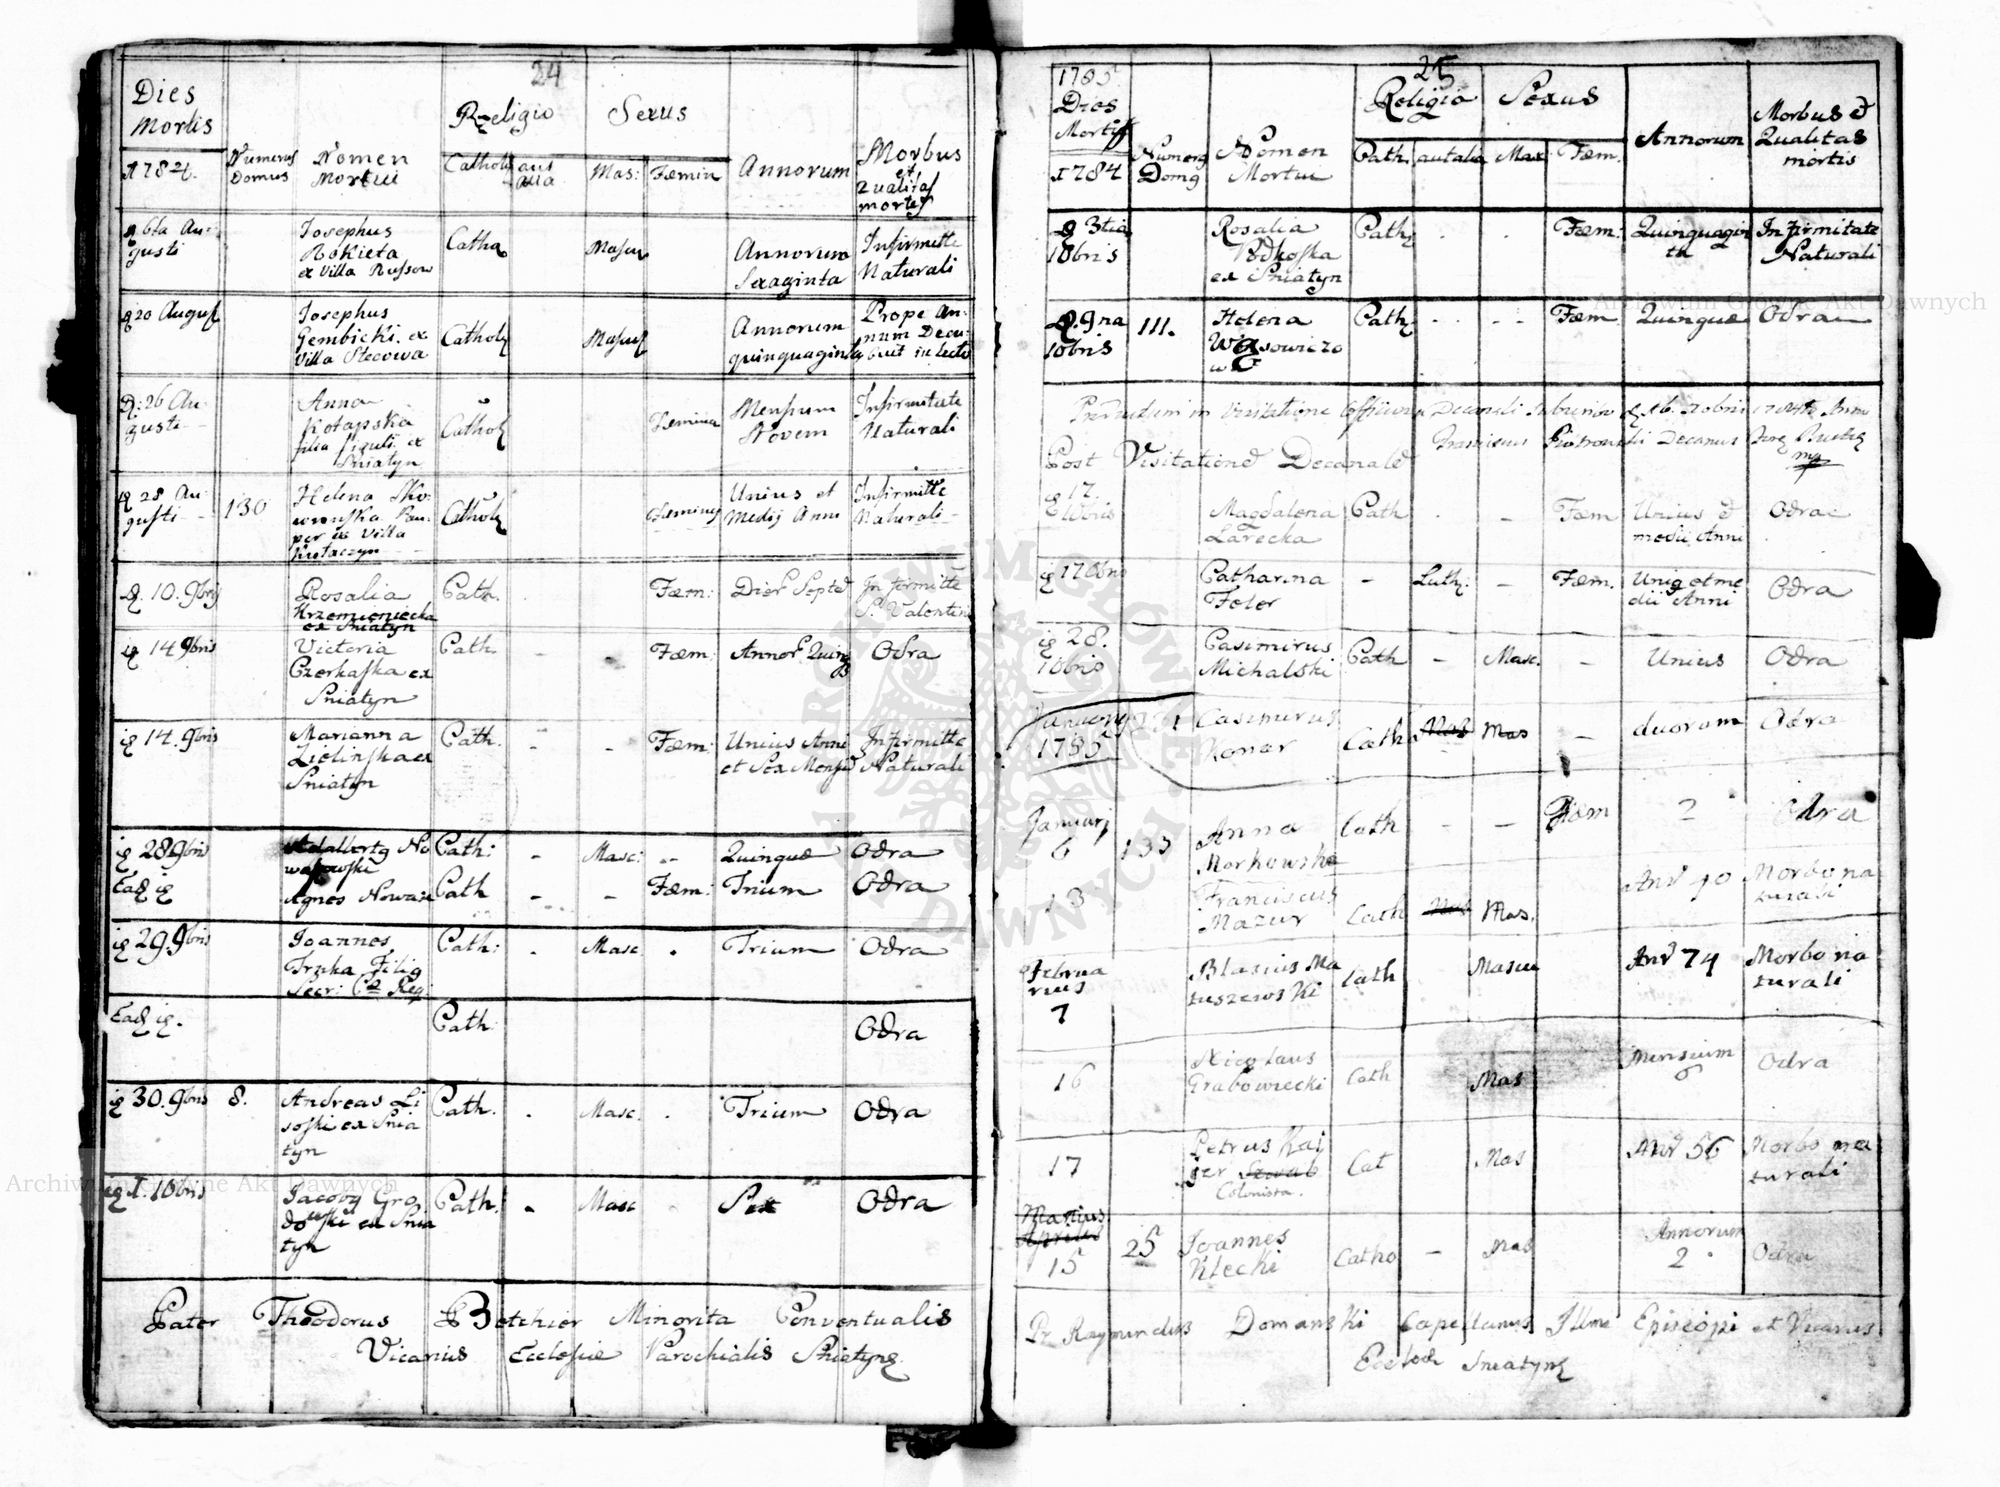 24
Dies
Mortis
1784.
Numerus
Domus
Nomen
Mortui
Religio
Cathol:
aut
alia
Sexus
Mas:
Fæmin
Annorum
Morbus
et
Qualitas
mortis
6ta Au-
gusti
Josephus
Rokieta
ex Villa Russow
Catho
Mascu
Annorum
Sexaginta
Infirmitte
Naturali
20 August
Josephus
Gembicki ex
Villa Stecowa
Cathol
Mascul
Annorum
quinquaginta
Prope An-
num Decu-
buit in lecto
D: 26 Au-
gusti
Anna
Kotapska
filia figuli ex
Sniatyn
Cathol
Femina
Mensium
Novem
Infirmitate
Naturali
28 Au-
gusti
130
Helena
ex Villa
Cathol
Femina
Unius et
Medij Anni
Infirmitte
Naturali
10. 9bris
Rosalia
Krzemieniecka
ex Sniatyn
Cath.
Fæm:
Dier Septe
Infirmitte
S. Valentini
14 9bris
Victoria
Czerkaska ex
Sniatyn
Cath.
Fæm:
Annor. Quinq
Odra
14. 9bris
Marianna
Zielinska ex
Sniatyn
Cath.
Fæm:
Unius Anni
et Sex Mensiu
Infirmitte
Naturali
28 9bris
Adalbertg No
wasowski
Cath:
Masc:
Quinque
Odra
Ead
Agnes Nowasi
Cath
Fæm:
Trium
Odra
29. 9bris
Joannes
Trzka Filig
Secr: Cæ Reg:
Cath:
Masc
Trium
Odra
Ead
Cath:
Odra
30. 9bris
8.
Andreas Li
soski ex Snia
tyn
Cath.
Masc.
Trium
Odra
1. 10bris
Jacobg Gro
dowski ex Snia
tyn
Cath.
Masc
Sex
Odra
Pater Theodorus Betchier Minorita Conventualis
Vicarius Ecclesiæ Parochialis Sniatyn
25
1785
Dies
Mortis
1784
Numerg
Domg
Nomen
Mortui
Religio
Cath:
aut alia
Sexus
Mas:
Fæm.
Annorum
Morbus &
Qualitas
mortis
3tia
10bris
Rosalia
Podhoska
ex Sniatyn
Cath
Fæm:
Quinquagin
ta
Infirmitate
Naturali
9na
10bris
111.
Helena
Wąsowiczo
wa
Cath
Fæm
Quinque
Odra
Franciscus Piotrowski Decanus
Post Visitatione Decanale
17.
10bris
Magdalena
Larecka
Cath
Fæm
Unius &
medii Anni
Odra
17 10bris
Catharina
Feler
Luth:
Fæm.
Unig et me
dii Anni
Odra
28.
10bris
Casimirus
Michalski
Cath
Masc.
Unius
Odra
Januarg
1785
Casimirus
Koner
Catho
Mas
Mas
duorum
Odra
Januarj
6
133
Anna
Morkowska
Cath
Fæm
2
Odra
13
Franciscus
Mazur
Cath
Mas
Mas.
Morbo na
turali
Februa
rius
7
Blasius Ma
tuszewski
Cath
Mascu
Anr 74
Morbo na
turali
16
Nicolaus
Grabowiecki
Cath
Mas
Mensium
6
Odra
17
Petrus Kaj
zer Szwab
Colonista.
Cat
Mas
Anr 56
Morbo na
turali
Martius
Aprilis
15
25
Joannes
Klecki
Catho
Mas
Annorum
2.
Odra
Pr. Raymundus Domanski Capellanus Illmi Episcopi et Vicarius
Eccloæ Sniatyn
Archiwum Główne Akt Dawnych
Archiwum Główne Akt Dawnych
ARCHIWUM GŁÓWNE AKT DAWNYCH